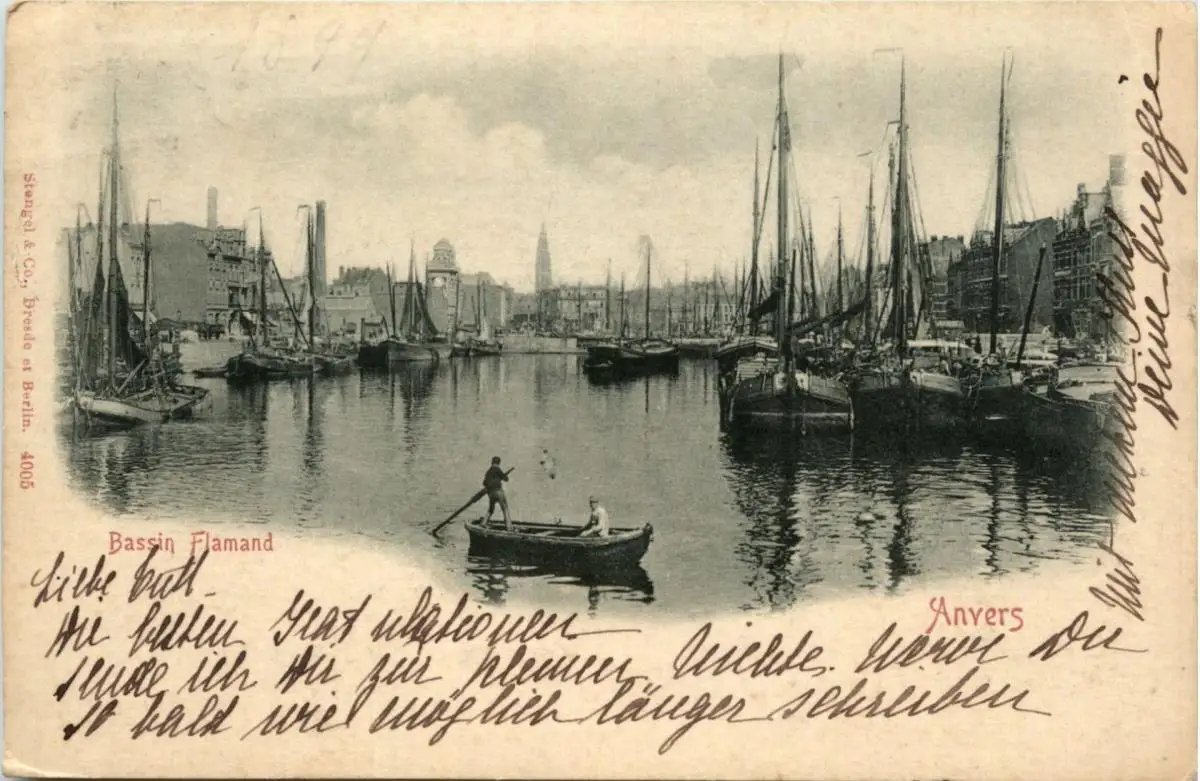 1899
Stengel & Co., Dresde et Berlin. 4005
Bassin Flamand
Anvers
Liebe
Die besten Gratulationen
sende ich Dir zur kleinen Nichte. Werde Dir
so bald wie möglich länger schreiben
Mit
Deine Maggie